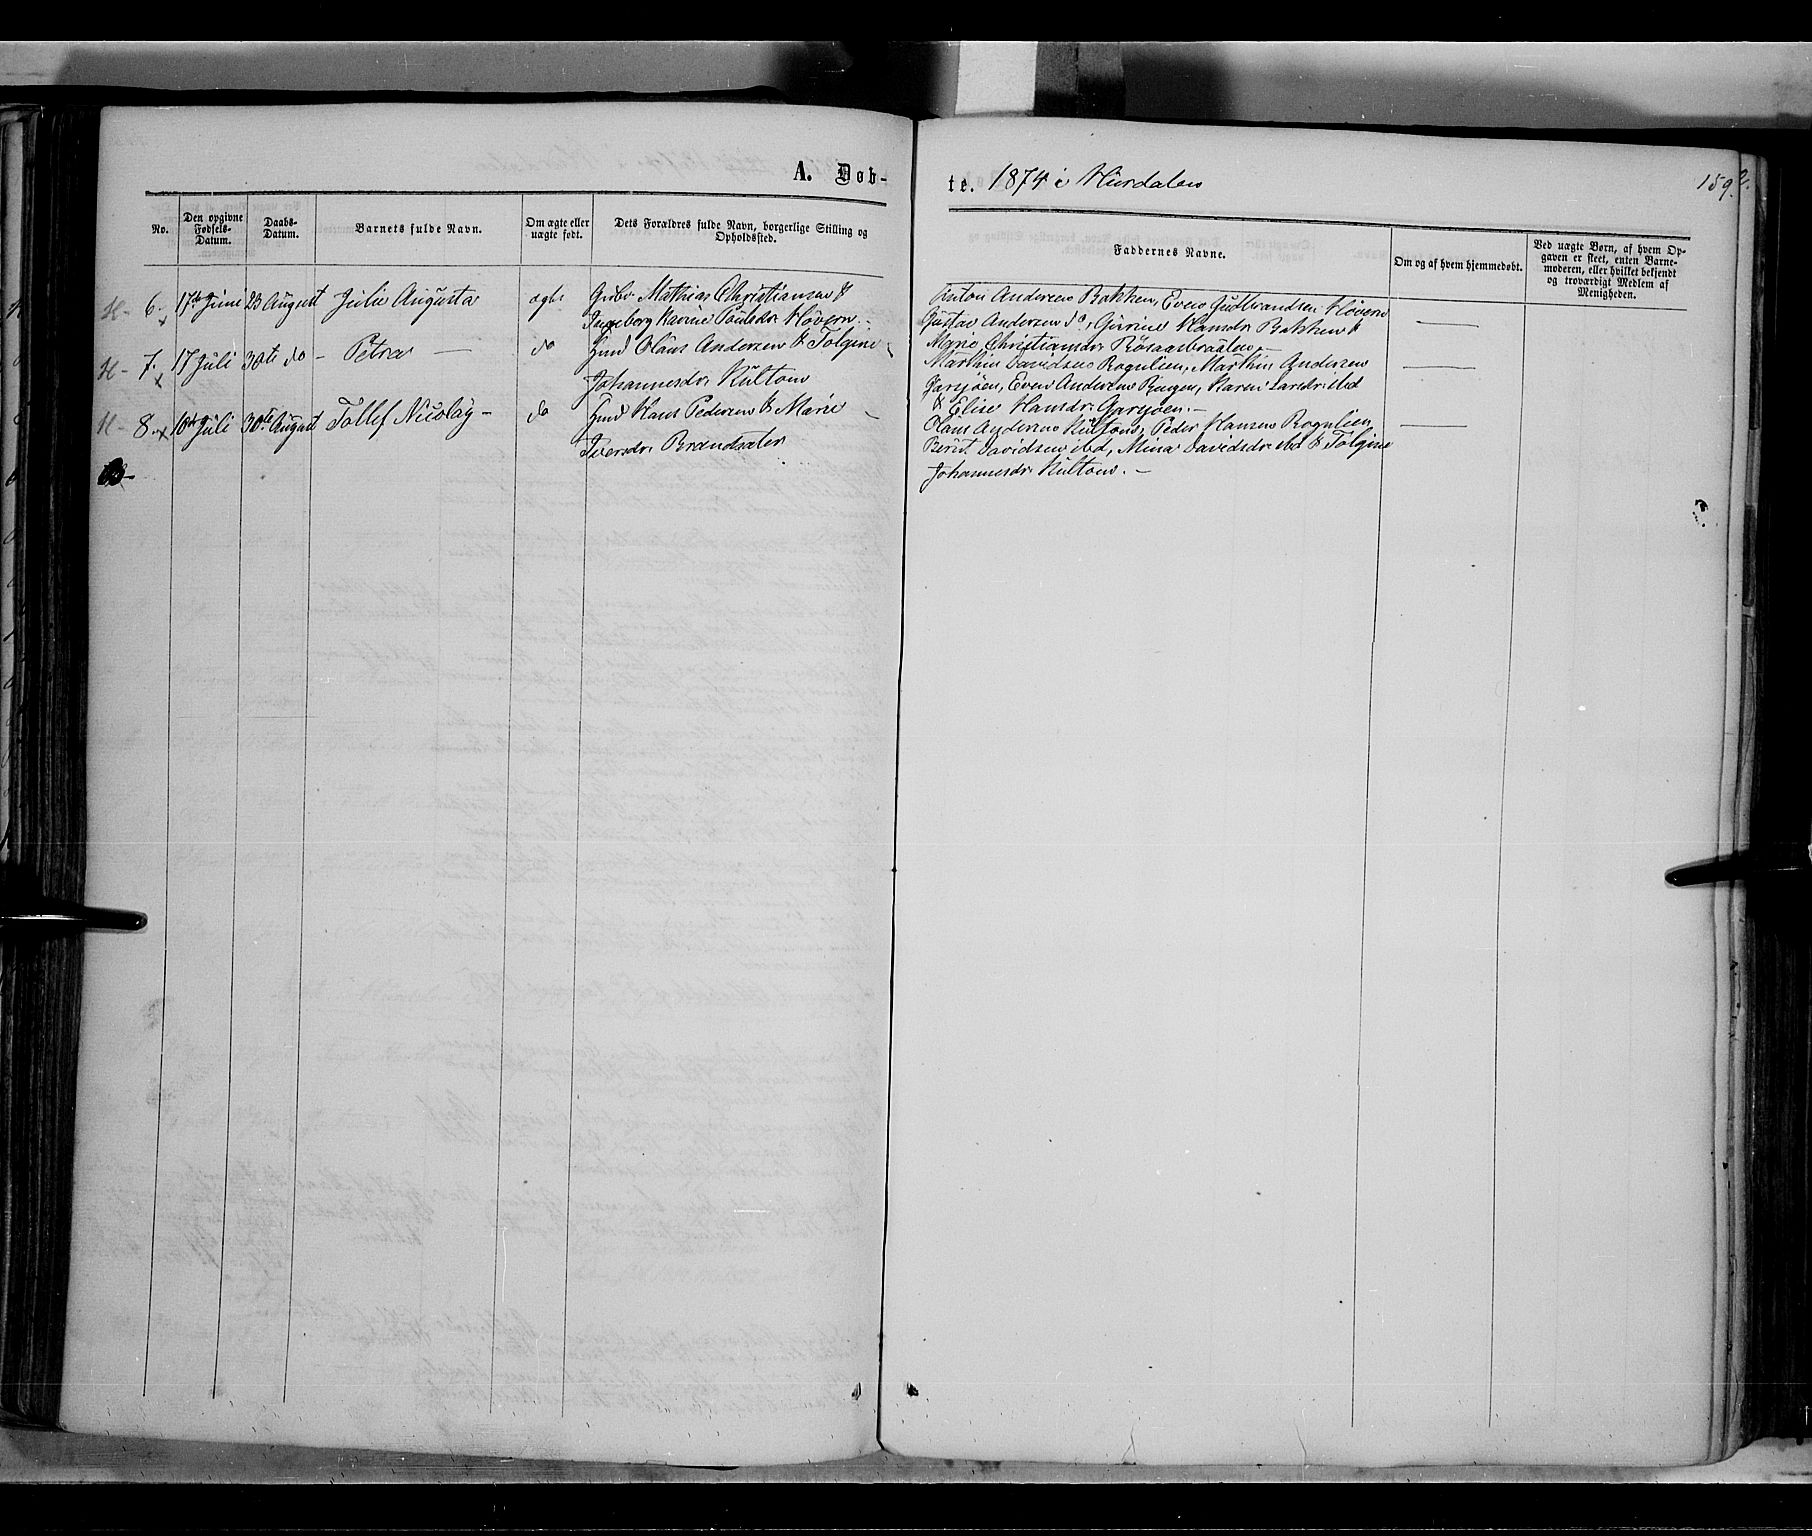 A. Døb-
No.
Den opgivne Fødsels-Datum.
Daabs-Datum.
Barnets fulde Navn.
Om ægte eller uægte født.
Dets Forældres fulde Navn, borgerlige Stilling og Opholdssted.
H- 6. x 17de Juni 23 August Julie Augusta ægte Gmbr Mathias Christiansen &
Ingeborg Karine Paulsdr. Høvern.-
H- 7. x 17 Juli 30te do - Petra - do Hmd Olaus Andersen & Tolgine
Johannesdr. Hultom
H- 8. x 10de Juli 30te August Tollef Nicolay- do Hmd Hans Pedersen & Marie
Iversdr. Brandsater
te. 1874 i Hurdalen
159.
Faddernes Navne.
Om og af hvem hjemmedøbt.
Ved uægte Børn, af hvem Op-
gaven er skeet, enten Barne-
moderen, eller hvilket bekjendt
og troværdigt Medlem af
Menigheden.
Anton Andersen Bakken, Even Gudbrandsen Høvern
Gustav Andersen do, Gurine Hansdr. Bakken &
Marie Christiansdr. Røsaasbraaten.-
Martin Davidsen Rognlien, Martin Andersen
Garsjøen, Even Andersen Rugen, Karen Larsdr. ibd
& Elise Hansdr. Garsjøen.-
Olaus Andersen Hultom, Peder Hansen Rognlien,
Bernt Davidsen ibd, Mina Davidsdr. ibd & Tolgine
Johannesdr. Hultom.-